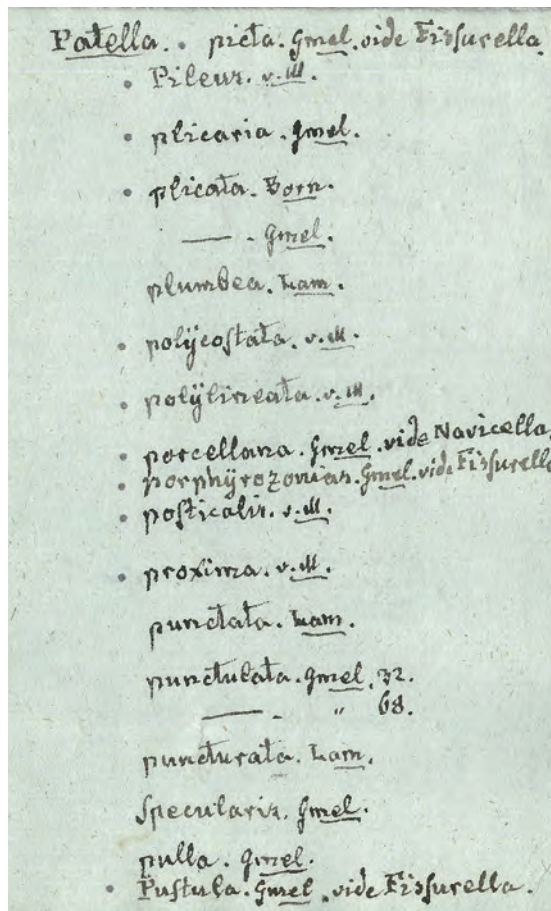 Patella. • picta. Gmel. vide Fissurella.
• Pileus. v. M.
• plicaria. Gmel.
• plicata. Born.
—— . Gmel.
plumbea. Lam.
• polÿcostata. v. M.
• polÿlineata. v. M.
• porcellana. Gmel. vide Navicella.
• porphÿrozonias. Gmel. vide Fissurella
• posticalis. v. M.
• proxima. v. M.
punctata. Lam.
punctulata. Gmel. 32.
—— . " 68.
puncturata. Lam.
Specularis. Gmel.
pulla. Gmel.
• Pustula. Gmel. vide Fissurella.